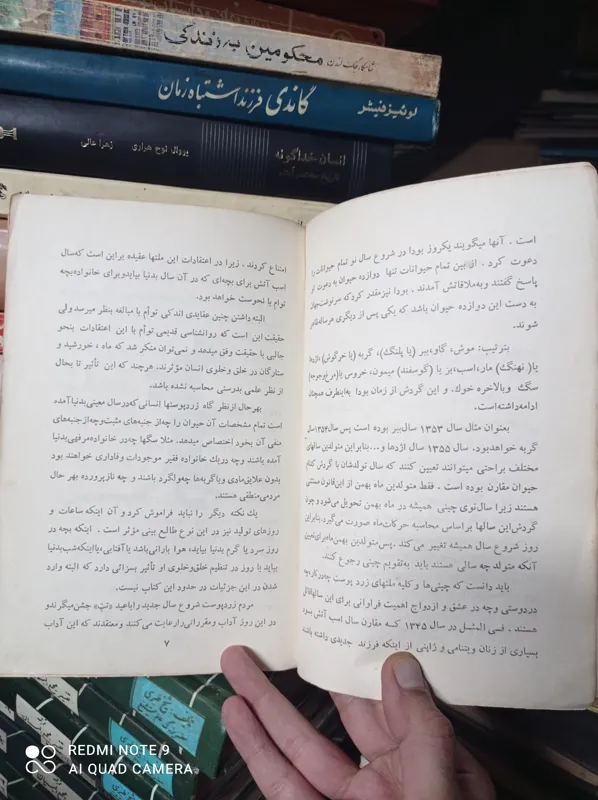 شاهکار جک لندن محکومین به زندگی
لوئیز فیشر گاندی فرزند اشتباه زمان
انسان خداگونه
یووال نوح هراری زهرا عالی
است . آنها میگویند یکروز بودا در شروع سال نو تمام حیوانات را
دعوت کرد . از بین تمام حیوانات تنها دوازده حیوان به دعوت او
پاسخ گفتند و بملاقاتش آمدند . بودا نیز مقدر کرد که سرنوشت جهان
به دست این دوازده حیوان باشد که یکی پس از دیگری هرساله ظاهر
شوند.
بترتیب: موش، گاو، ببر (یا پلنگ)، گربه (یا خرگوش)، اژدها
یا (نهنگ) مار، اسب، بز یا (گوسفند) میمون، خروس یا (مرغ یا جوجه)
سگ وبالاخره خوك. و این گردش از زمان بودا به اینطرف همچنان
ادامه داشته است.
بعنوان مثال سال ۱۳۵۳ سال ببر بوده است پس سال ۱۳۵۴ سال
گربه خواهد بود. سال ۱۳۵۵ سال اژدها و... بنابراین متولدین سالهای
مختلف براحتی میتوانند تعیین کنند که سال تولدشان با گردش کدام
حیوان مقارن بوده است . فقط متولدین ماه بهمن از این قانون مستثنی
هستند زیرا سال نوی چینی همیشه در ماه بهمن تحویل می‌شود و چون
گردش این سالها براساس محاسبه حرکات ماه صورت می‌گیرد. بنابراین
روز شروع سال همیشه تغییر می‌کند. پس متولدین بهمن ماه برای تعیین
آنکه متولد چه سالی هستند باید به تقویم چینی رجوع کنند.
باید دانست که چینی‌ها و کلیه ملتهای زرد پوست چه در کار چه
در دوستی و چه در عشق و ازدواج اهمیت فراوانی برای این سالها قائل
هستند . فی المثل در سال ۱۳۴۵ که مقارن سال اسب آتش بود
بسیاری از زنان ویتنامی و ژاپنی از اینکه فرزند جدیدی داشته باشند
امتناع کردند . زیرا در اعتقادات این ملتها عقیده براین است که سال
اسب آتش برای بچه‌ای که در آن سال بدنیا بیاید و برای خانواده بچه
توأم با نحوست خواهد بود.
البته داشتن چنین عقایدی اندکی توأم با مبالغه بنظر میرسد ولی
حقیقت این است که روانشناسی قدیمی توأم با این اعتقادات بنحو
جالبی با حقیقت وفق میدهد و نمی‌توان منکر شد که ماه ، خورشید و
ستارگان در خلق و خلوی انسان مؤثرند. هرچند که این تأثیر تا بحال
از نظر علمی بدرستی محاسبه نشده باشد.
بهر حال از نظر گاه زردپوستها انسانی که در سال معینی بدنیا آمده
است تمام مشخصات آن حیوان را چه از جنبه‌های مثبت و چه از جنبه‌های
منفی آن بخود اختصاص میدهد. مثلا سگها چه در خانواده مرفهی بدنیا
آمده باشند وچه در یك خانواده فقیر موجودات وفاداری خواهند بود
بدون علایق مادی و یا گربه‌ها چه ولگرد باشند و چه نازپرورده بهر حال
مردمی منطقی هستند.
یك نکته دیگر را نباید فراموش کرد و آن اینکه ساعات و
روزهای تولید نیز در این نوع طالع بینی مؤثر است . اینکه بچه در
روز سرد یا گرم بدنیا بیاید، هوا بارانی باشد یا آفتابی، یا اینکه شب بدنیا
بیاید یا روز در تنظیم خلق و خلوی او تأثیر بسزائی دارد که البته وارد
شدن در این جزئیات در حدود این کتاب نیست.
مردم زردپوست شروع سال جدید را با عید «تت» جشن میگرندو
در این روز آداب و مقرراتی را رعایت می‌کنند و معتقدند که این آداب
۷
REDMI NOTE 9
AI QUAD CAMERA